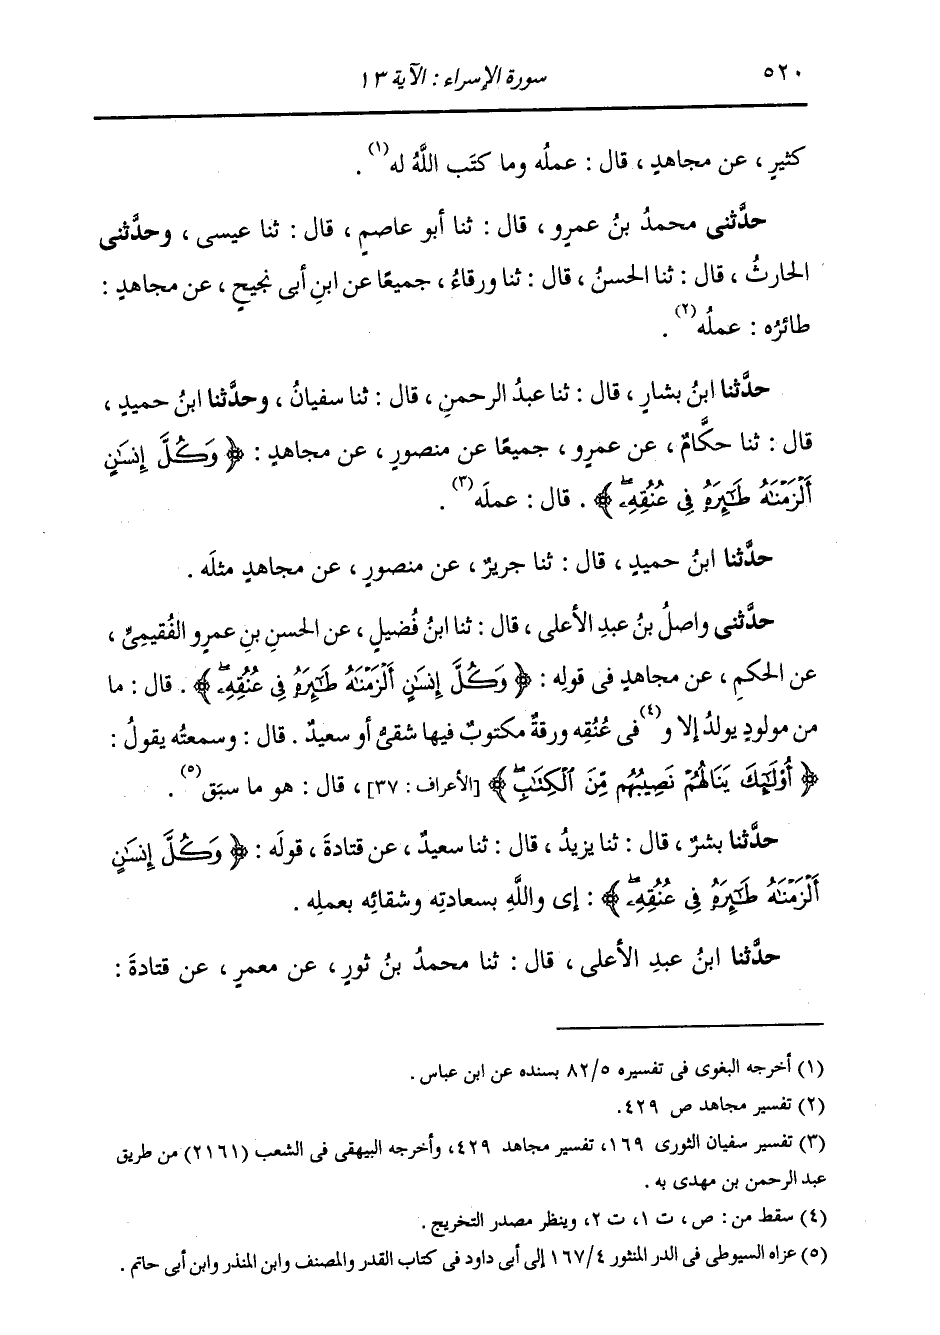 ٥٢٠
سورة الإسراء : الآية ١٣
كثيرٍ ، عن مجاهدٍ ، قال : عملُه وما كتَب اللَّهُ له(١) .
حدَّثنى محمدُ بنُ عمرٍو ، قال : ثنا أبو عاصمٍ ، قال : ثنا عيسى ، وحدَّثنى
الحارثُ ، قال : ثنا الحسنُ ، قال : ثنا ورقاءُ ، جميعًا عن ابنِ أبى نجيحٍ ، عن مجاهدٍ :
طائرُه : عملُه(٢) .
حدَّثنا ابنُ بشارٍ ، قال : ثنا عبدُ الرحمنِ ، قال : ثنا سفيانُ ، وحدَّثنا ابنُ حميدٍ ،
قال : ثنا حكَّامٌ ، عن عمرٍو ، جميعًا عن منصورٍ ، عن مجاهدٍ : ﴿ وَكُلَّ إِنسَٰنٍ
أَلْزَمْنَٰهُ طَٰٓئِرَهُۥ فِى عُنُقِهِۦۖ ﴾ . قال : عملَه(٣) .
حدَّثنا ابنُ حميدٍ ، قال : ثنا جريرٌ ، عن منصورٍ ، عن مجاهدٍ مثلَه .
حدَّثنى واصلُ بنُ عبدِ الأعلى ، قال : ثنا ابنُ فُضيلٍ ، عن الحسنِ بنِ عمرٍو الفُقيمِىِّ ،
عن الحكمِ ، عن مجاهدٍ فى قولِه : ﴿ وَكُلَّ إِنسَٰنٍ أَلْزَمْنَٰهُ طَٰٓئِرَهُۥ فِى عُنُقِهِۦۖ ﴾ . قال : ما
من مولودٍ يولدُ إلا و(٤)فى عُنُقِه ورقةٌ مكتوبٌ فيها شقىٌّ أو سعيدٌ . قال : وسمعتُه يقولُ :
﴿ أُوْلَٰٓئِكَ يَنَالُهُمْ نَصِيبُهُم مِّنَ ٱلْكِتَٰبِۖ ﴾ [الأعراف : ٣٧] ، قال : هو ما سبَق(٥) .
حدَّثنا بشرٌ ، قال : ثنا يزيدُ ، قال : ثنا سعيدٌ ، عن قتادةَ ، قولَه : ﴿ وَكُلَّ إِنسَٰنٍ
أَلْزَمْنَٰهُ طَٰٓئِرَهُۥ فِى عُنُقِهِۦۖ ﴾ : إى واللَّهِ بسعادتِه وشقائِه بعملِه .
حدَّثنا ابنُ عبدِ الأعلى ، قال : ثنا محمدُ بنُ ثورٍ ، عن معمرٍ ، عن قتادةَ :
(١) أخرجه البغوى فى تفسيره ٨٢/٥ بسنده عن ابن عباس .
(٢) تفسير مجاهد ص ٤٢٩.
(٣) تفسير سفيان الثورى ١٦٩، تفسير مجاهد ٤٢٩، وأخرجه البيهقى فى الشعب (٢١٦١) من طريق
عبد الرحمن بن مهدى به .
(٤) سقط من : ص ، ت ١، ت ٢، وينظر مصدر التخريج .
(٥) عزاه السيوطى فى الدر المنثور ١٦٧/٤ إلى أبى داود فى كتاب القدر والمصنف وابن المنذر وابن أبى حاتم .